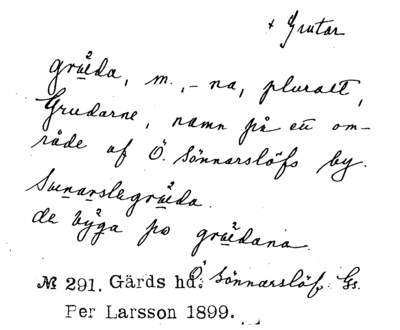 + Grutar
grŭda, m., -na, pluralt,
Grudarne, namn på ett om-
råde af Ö. Sönnarslöfs by.
de byga po
№ 291. Gärds hd. Ö. Sönnarslöf Gs.
Per Larsson 1899.